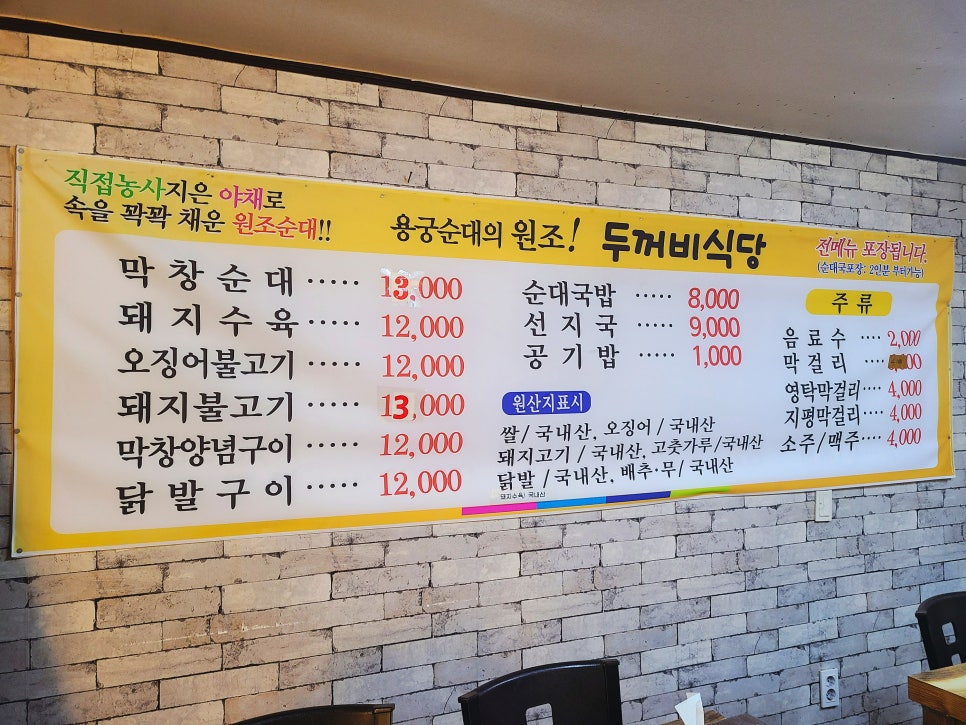 직접농사지은 야채로
속을 꽉꽉 채운 원조순대!!
용궁순대의 원조! 두꺼비식당
전메뉴 포장됩니다.
(순대국포장: 2인분 부터가능)
막창순대 ····· 13,000
돼지수육 ····· 12,000
오징어불고기 ····· 12,000
돼지불고기 ····· 13,000
막창양념구이 ····· 12,000
닭발구이 ····· 12,000
순대국밥 ····· 8,000
선지국 ····· 9,000
공기밥 ····· 1,000
원산지표시
쌀/국내산, 오징어/국내산
돼지고기/국내산, 고춧가루/국내산
닭발/국내산, 배추·무/국내산
돼지수육/국내산
주류
음료수 ···· 2,000
막걸리 ····
영탁막걸리 ···· 4,000
지평막걸리 ···· 4,000
소주/맥주 ···· 4,000